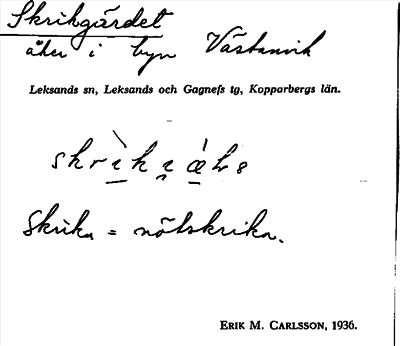 Skrikgärdet
åker i byn Västanvik
Leksands sn, Leksands och Gagnefs tg, Kopparbergs län.
Skrika = nötskrika.
ERIK M. CARLSSON, 1936.